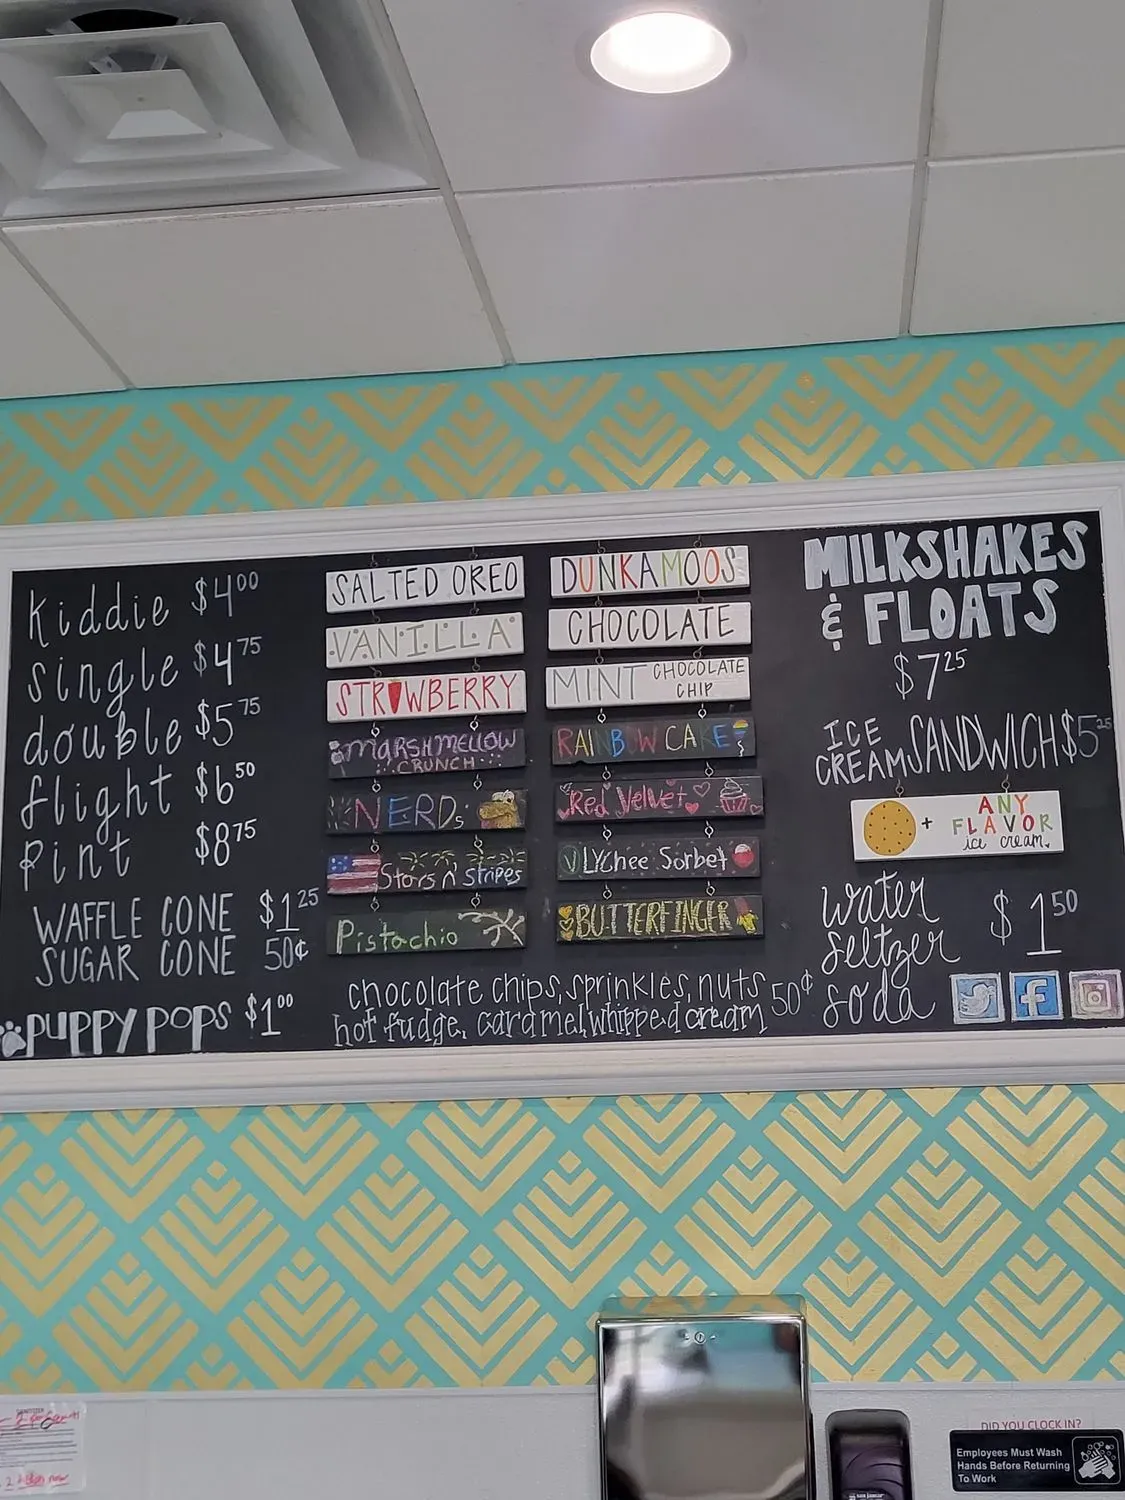 Kiddie $4.00
single $4.75
double $5.75
flight $6.50
Pint $8.75
WAFFLE CONE $1.25
SUGAR CONE 50¢
PUPPY POPS $1.00
SALTED OREO
VANILLA
STRAWBERRY
MARSHMELLOW
CRUNCH
NERDS
Stars n' stripes
Pistachio
DUNKAMOOS
CHOCOLATE
MINT CHOCOLATE
CHIP
RAINBOW CAKE
Red Velvet
V LYChee Sorbet
BUTTERFINGER
chocolate chips, sprinkles, nuts 50¢
hot fudge, caramel, whipped cream
MILKSHAKES
& FLOATS
$7.25
ICE
CREAM SANDWICH $5.25
+ ANY
FLAVOR
ice cream
water
seltzer $1.50
soda
DID YOU CLOCK IN?
Employees Must Wash
Hands Before Returning
To Work